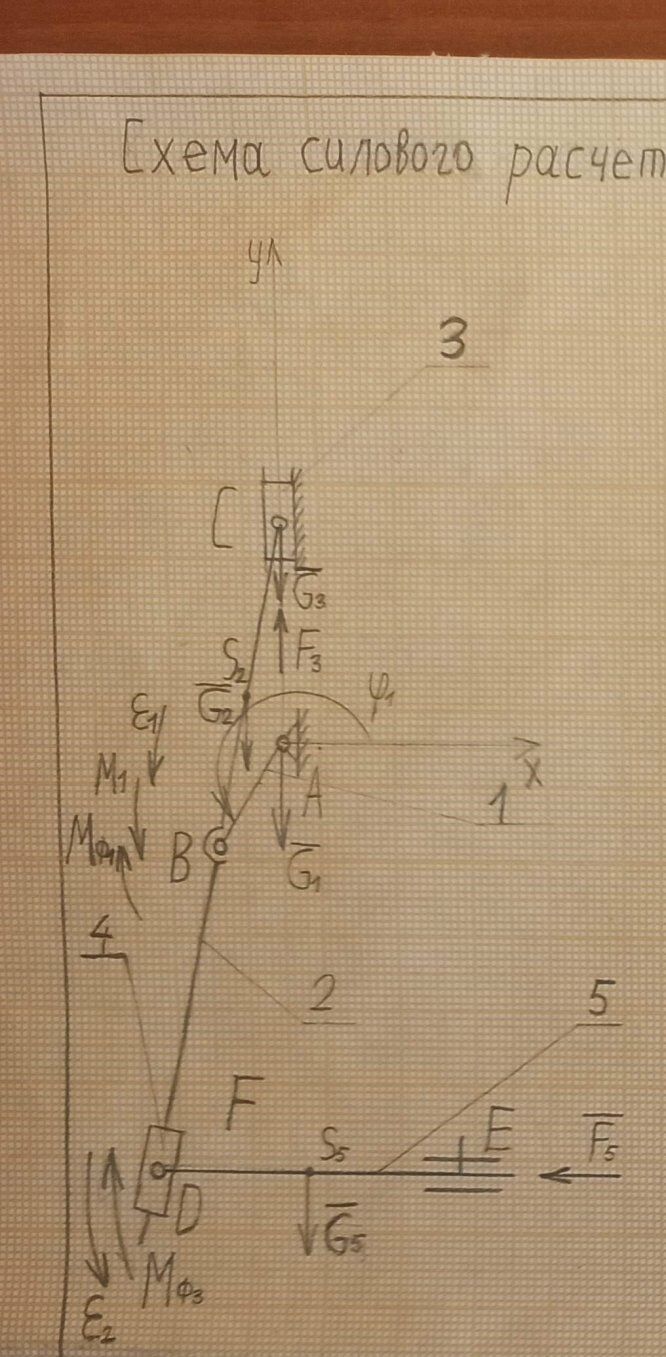 Схема силового расчет
y
3
C
G₃
F₃
S₂
G₂
φ₁
ε₁
x
M₁
A
1
Mφ₁
B
G₁
4
2
5
F
S₅
E
F₅
D
G₅
Mφ₃
ε₂